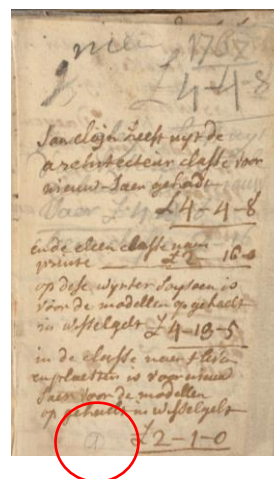 nieu 1767
£ 4-4-8
heeft uyt de
architecteur classe voor
nieuw-Jaer gehadt
£ 4-4-8
Ende eleen classe naer
£ 2- 16-
op dese wynter saysoen is
voor de modellen opgehadt
in wisselgelt £ 4-13-5
in de classe naer t leven
is voor nieuw
Jaer voor de modellen
op gehadt in wisselgelt
£ 2-1-0